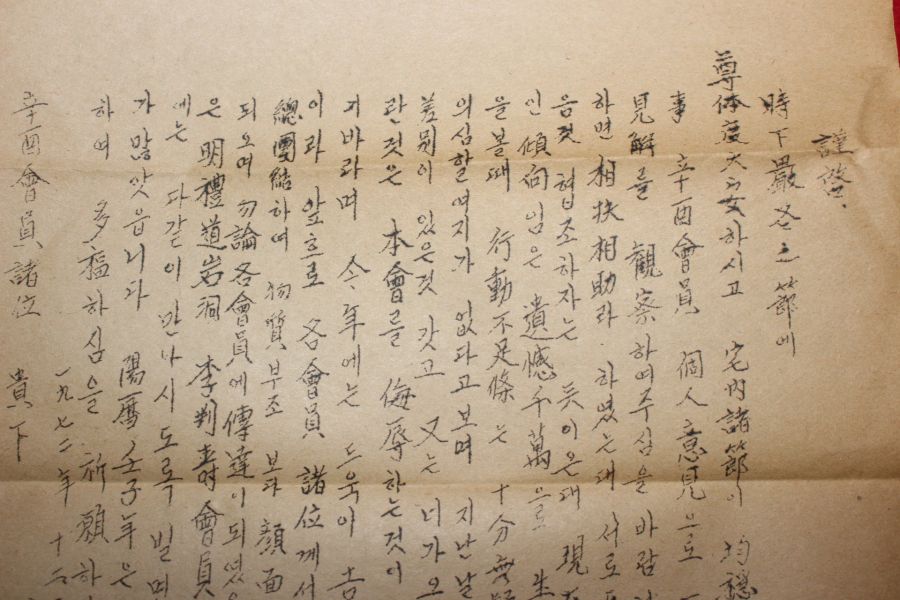 謹啓.
時下嚴冬之節에
尊体度大安하시고 宅內諸節이 均穩
事 辛酉會員 個人意見으로
見解를 觀察하여주심을 바람
하면 相扶相助라 하였는대 서로
음것 협조하자는 뜻이온대 現
인 傾向임은 遺憾千萬으로 生
을볼때 行動不足條는 十分無
의심할여지가 없다고보며 지난날
差別이 있은것 갓고 又는 너가오
란것은 本會를 侮辱하는것이
기바라며 今年에는 드욱이
이라 앞흐로 各會員 諸位께서
總團結하여 物質부조 보다 顔面
되오며 勿論各會員에傳達이되였
은 明禮道岩洞 李判壽會員
에는 다같이 만나시도록 빌며
가 많앗읍니다 陽曆壬子年은
하여 多福하심을 祈願하
一九七二年 十二
辛酉會員 諸位 貴下